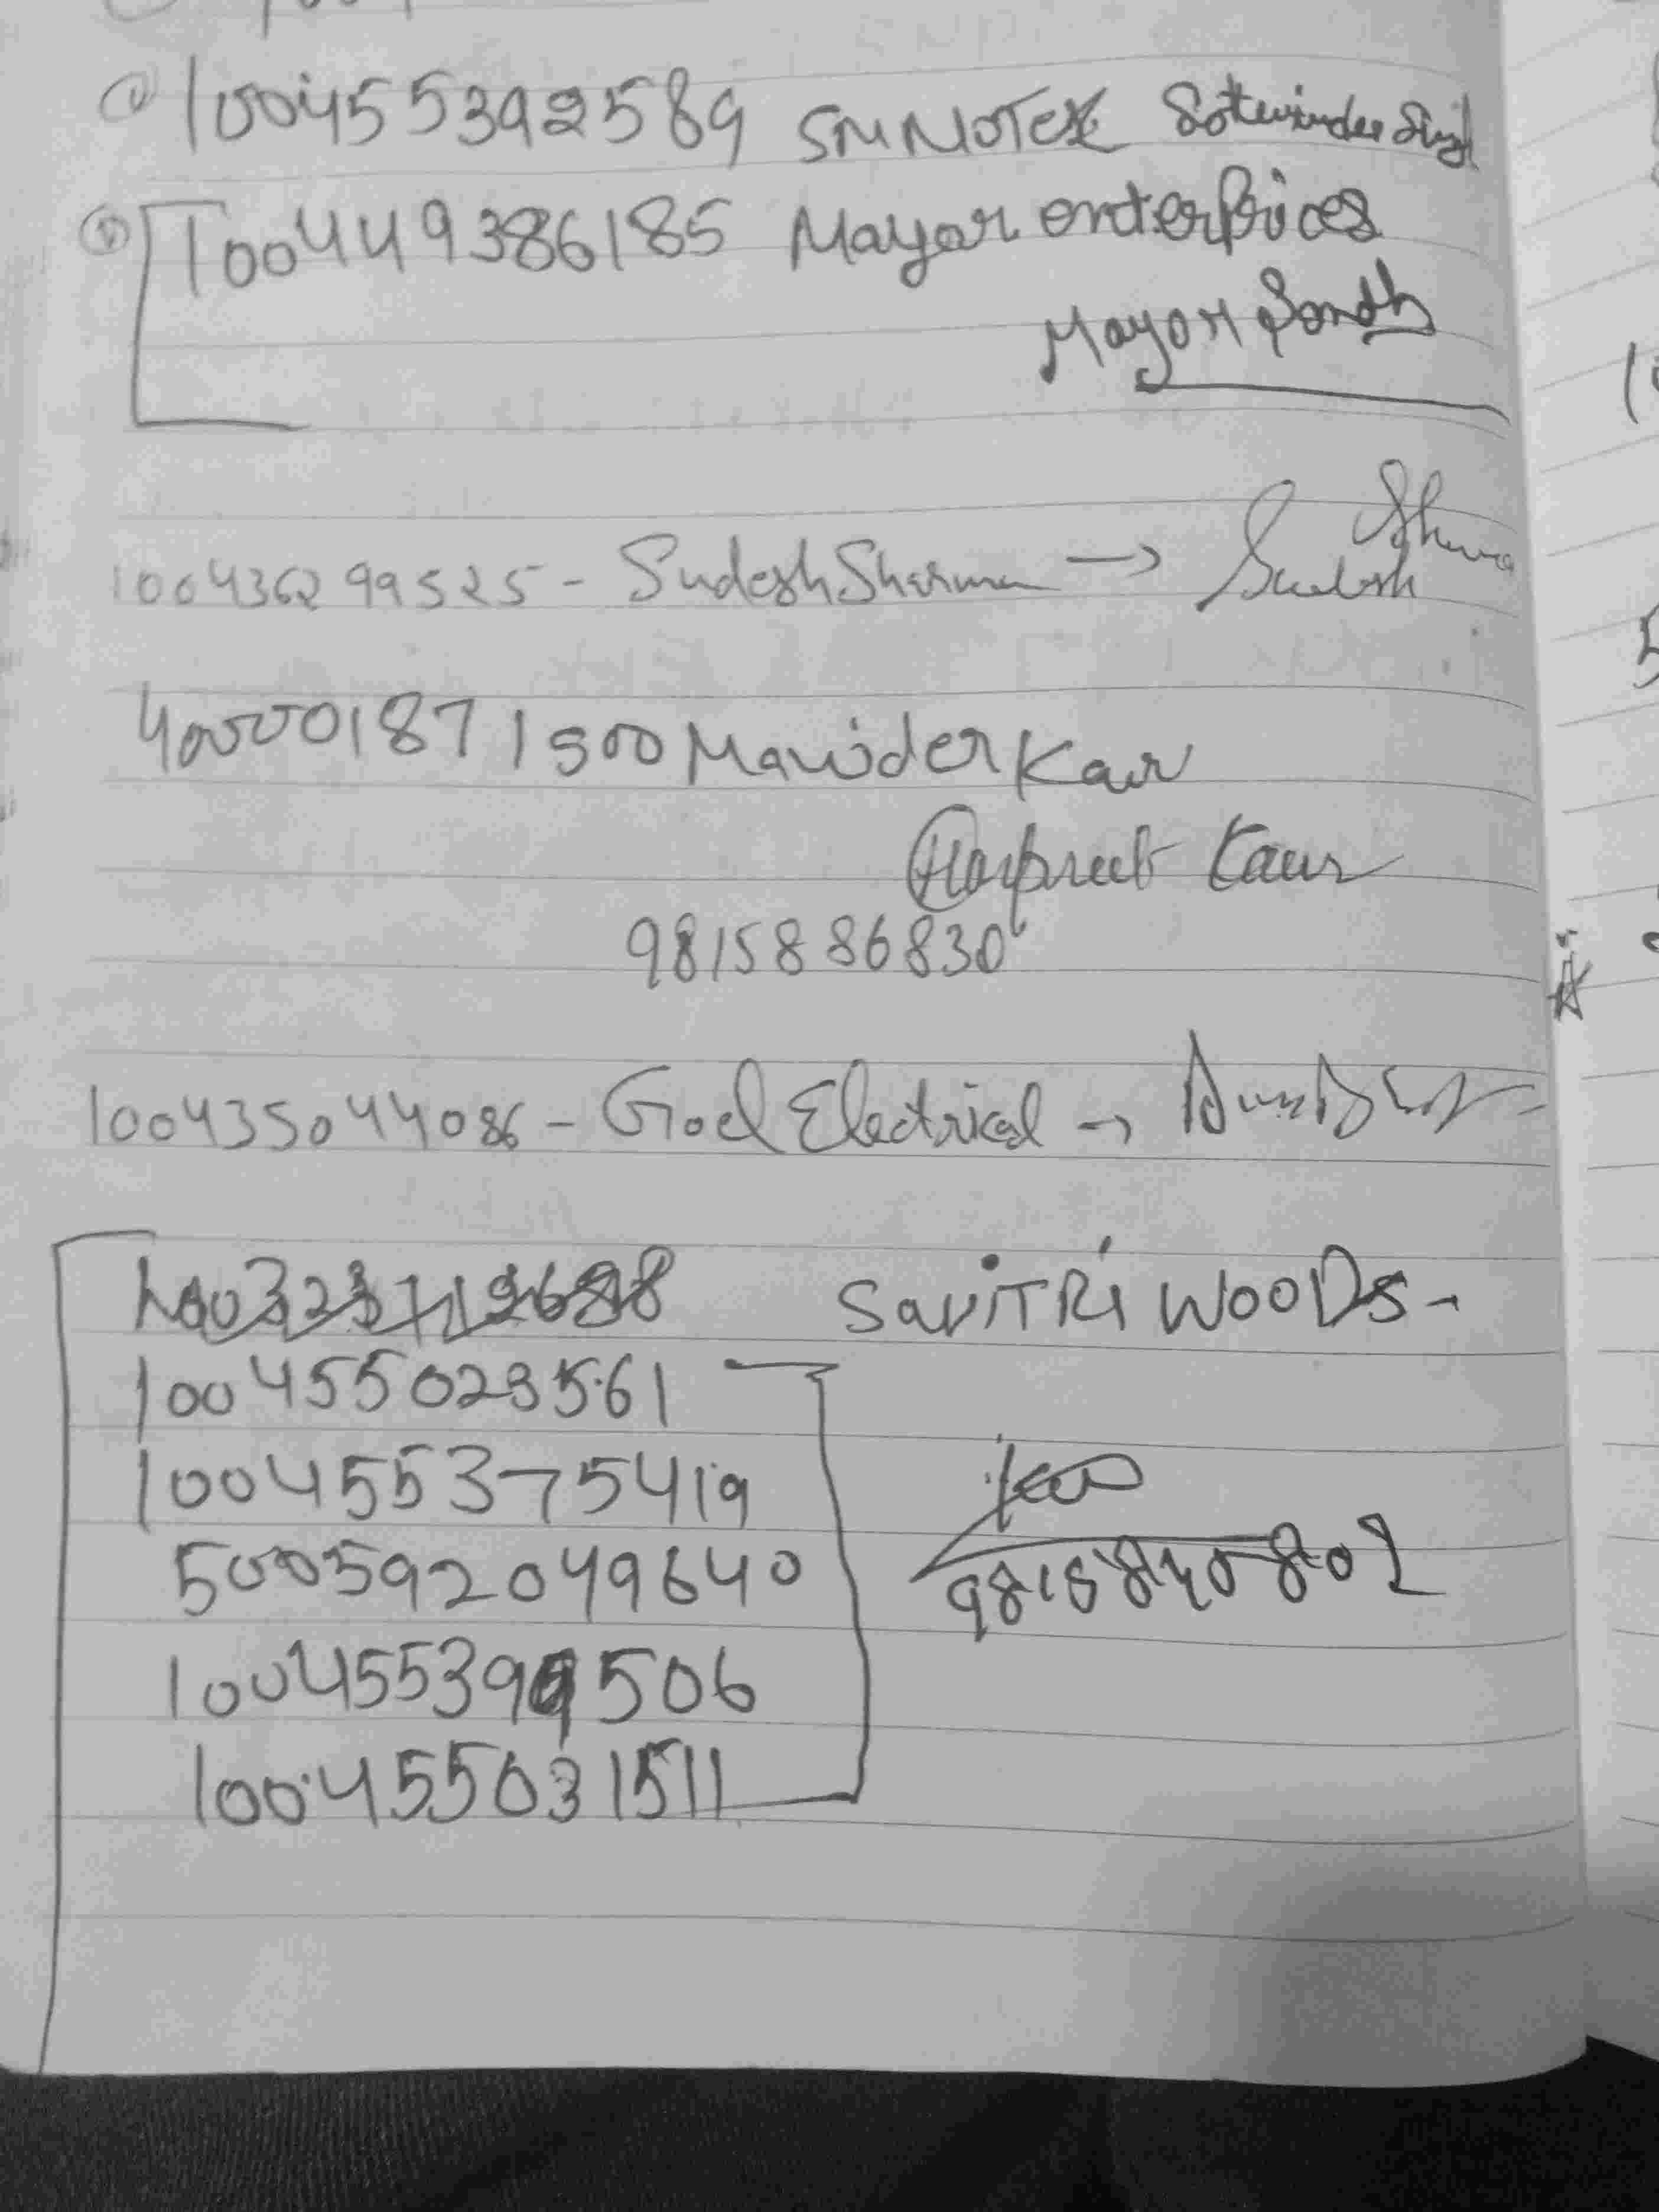 ① 100455392589 SM NOTEX Satwinder Singh
① 100449386185 Mayor enterprices
Mayor Sondh
100436299525 - Sudesh Sharma → Sudesh Sharma
400001871500 Mawider Kaur
Harpreet Kaur
9815886830
100435044086 - Goel Electrical →
SAVITRI WOODS -
100455023561
100455375419
500592049640
100455399506
100455031511